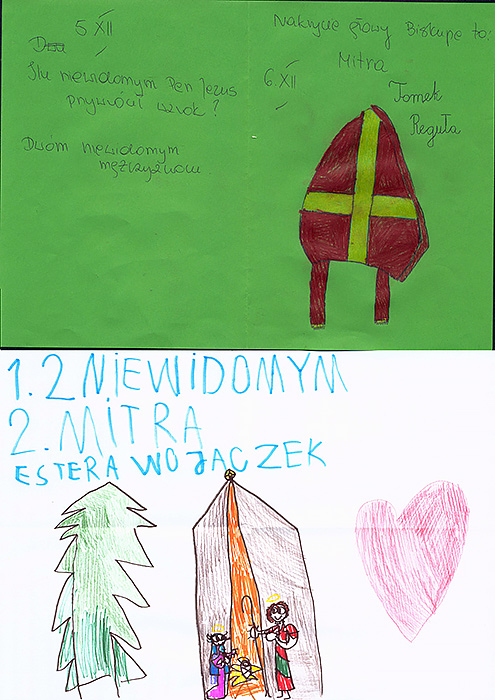 5 XII
Ilu niewidomym Pan Jezus
przywrócił wzrok?
Dwóm niewidomym
mężczyznom
Nakrycie głowy Biskupa to:
Mitra
6 XII
Tomek
Reguła
1. 2 NIEWIDOMYM
2. MITRA
ESTERA WOJACZEK